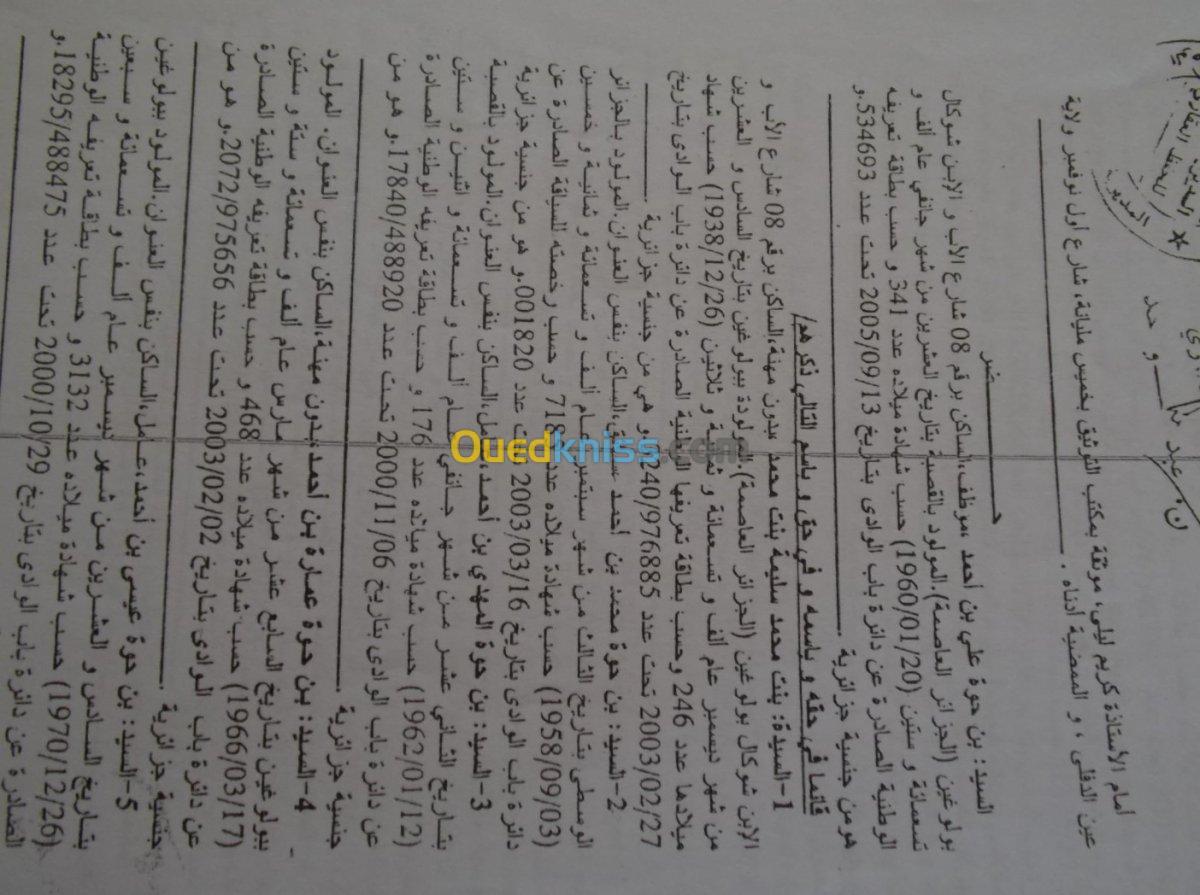 أمام الأستاذة كريم ليلى، موثقة بمكتب التوثيق بخميس مليانة، شارع أول نوفمبر ولاية
عين الدفلى، و الممضية أدناه.
حضر
السيد: بن حوة علي بن أحمد، موظف، الساكن برقم 08 شارع الأب و الإبن شوكال
بولوغين (الجزائر العاصمة). المولود بالقصبة بتاريخ العشرين من شهر جانفي عام ألف و
تسعمائة و ستين (1960/01/20) حسب شهادة ميلاده عدد 341 و حسب بطاقة تعريفه
الوطنية الصادرة عن دائرة باب الوادى بتاريخ 2005/09/13 تحت عدد 534693.و
هو من جنسية جزائرية
قائما في حقه و باسمه و في حق و باسم التالي ذكرهم/
1-السيدة: بنت محمد سليمة بنت محمد، بدون مهنة، الساكن برقم 08 شارع الأب و
الإبن شوكال بولوغين (الجزائر العاصمة) المولودة ببولوغين بتاريخ السادس و العشرين
من شهر ديسمبر عام ألف و تسعمائة و ثمانية و ثلاثين (1938/12/26) حسب شهادة
ميلادها عدد 246 وحسب بطاقة تعريفها الوطنية الصادرة عن دائرة باب الوادى بتاريخ
2003/02/27 تحت عدد 240/976885.و هي من جنسية جزائرية
2-السيد: بن حوة محمد بن أحمد، الساكن بنفس العنوان. المولود بالجزائر
الوسطى بتاريخ الثالث من شهر سبتمبر عام ألف و تسعمائة و ثمانية و خمسين
(1958/09/03) حسب شهادة ميلاده عدد 718 و حسب رخصته للسياقة الصادرة عن
دائرة باب الوادى بتاريخ 2003/03/16 تحت عدد 001820.و هو من جنسية جزائرية
3-السيد: بن حوة المهدي بن أحمد، عامل، الساكن بنفس العنوان. المولود بالقصبة
بتاريخ الثاني عشر من شهر جانفي عام ألف و تسعمائة و اثنين و ستين
(1962/01/12) حسب شهادة ميلاده عدد 176 و حسب بطاقة تعريفه الوطنية الصادرة
عن دائرة باب الوادى بتاريخ 2000/11/06 تحت عدد 17840/488920.و هو من
جنسية جزائرية.
4-السيد: بن حوة عمارة بن أحمد، بدون مهنة، الساكن بنفس العنوان. المولود
ببولوغين بتاريخ السابع عشر من شهر مارس عام ألف و تسعمائة و ستة و ستين
(1966/03/17) حسب شهادة ميلاده عدد 468 و حسب بطاقة تعريفه الوطنية الصادرة
عن دائرة باب الوادى بتاريخ 2003/02/02 تحت عدد 2072/975656.و هو من
جنسية جزائرية.
5-السيد: بن حوة عيسى بن أحمد، عامل، الساكن بنفس العنوان. المولود ببولوغين
بتاريخ السادس و العشرين من شهر ديسمبر عام ألف و تسعمائة و سبعين
(1970/12/26) حسب شهادة ميلاده عدد 3132 و حسب بطاقة تعريفه الوطنية
الصادرة عن دائرة باب الوادى بتاريخ 2000/10/29 تحت عدد 18295/488475.و
Ouedkniss.com